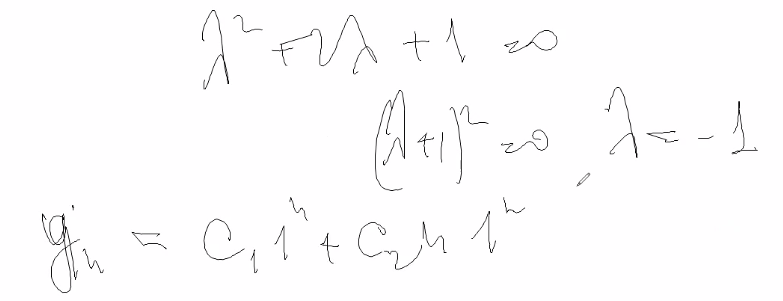 λ² + 2λ + 1 = 0
(λ + 1)² = 0, λ = -1
yₙ = C₁ 1ⁿ + C₂ n 1ⁿ